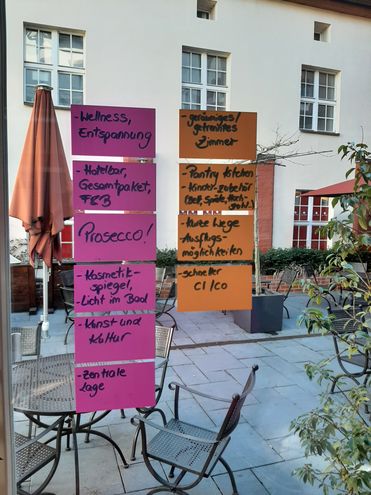 - Wellness,
Entspannung
- Hotelbar,
Gesamtpaket,
F&B
Prosecco!
- Kosmetik-
spiegel,
- Licht im Bad
- Kunst und
Kultur
- Zentrale
Lage
- geräumiges/
getrenntes
Zimmer
- Pantry kitchen
- Kinder-Zubehör
- Kurze Wege
- Ausflugs-
möglichkeiten
- schneller
CI/CO